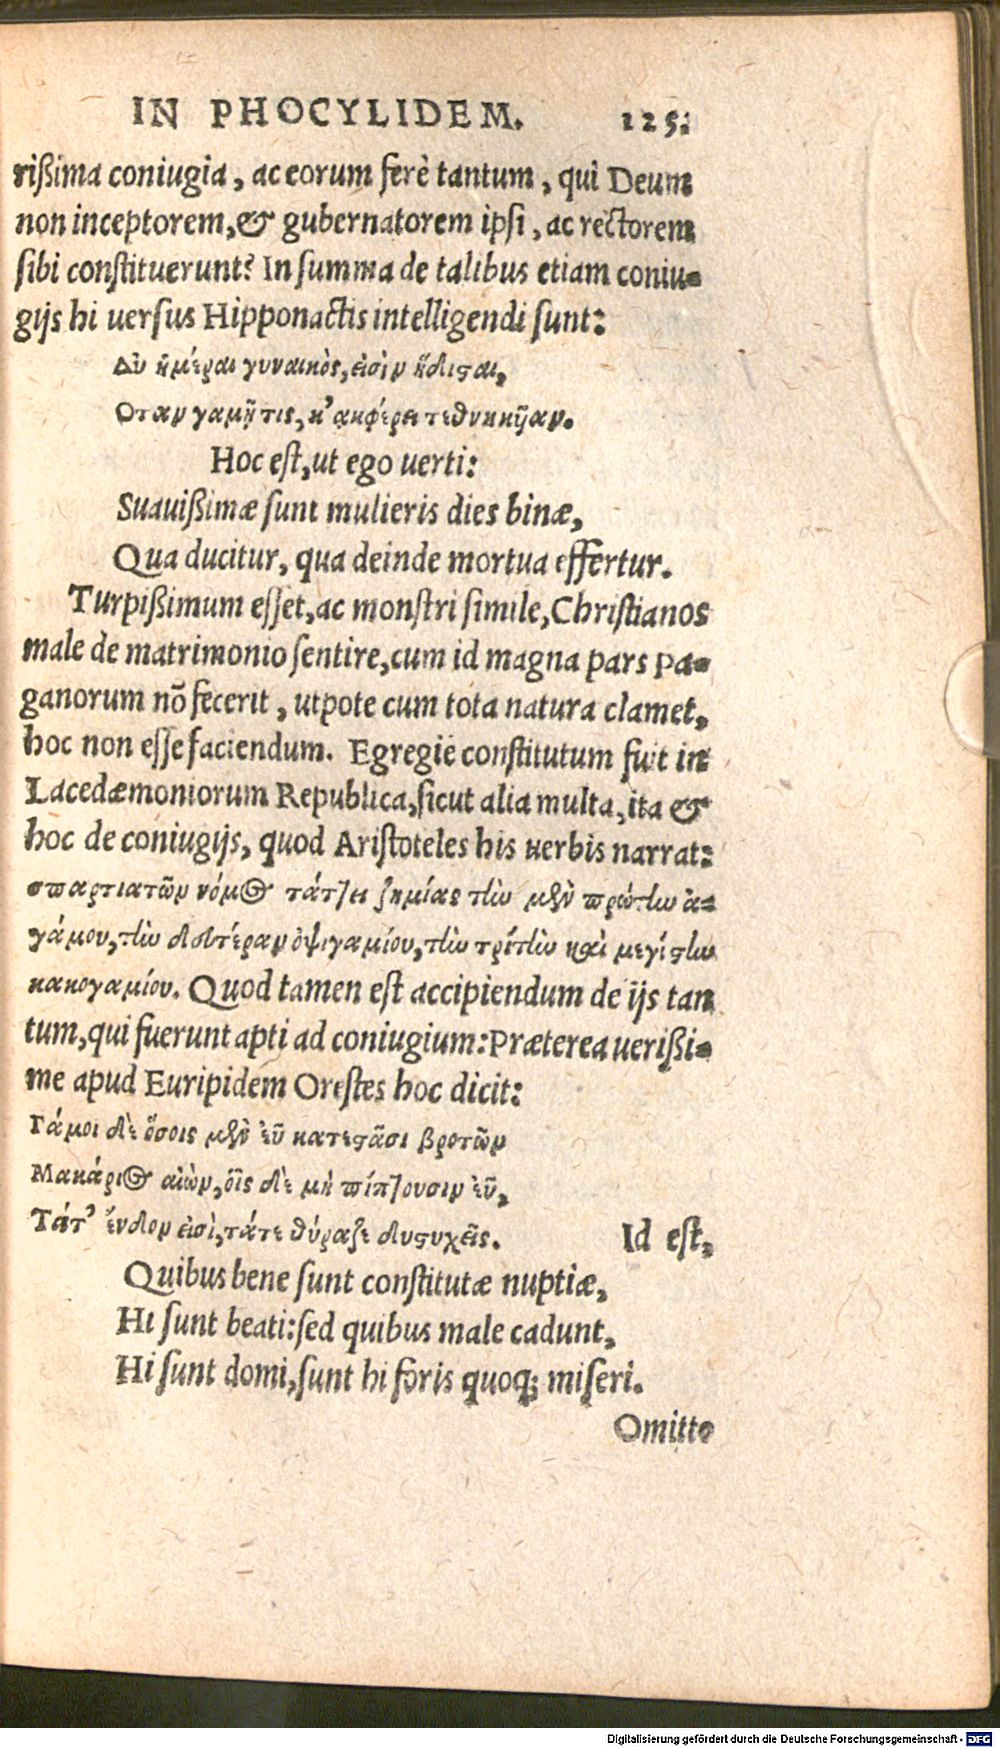 IN PHOCYLIDEM. 125.
rißima coniugia, ac eorum ferè tantum, qui Deum
non inceptorem, & gubernatorem ipsi, ac rectorem
sibi constituerunt? In summa de talibus etiam coniu-
gijs hi uersus Hipponactis intelligendi sunt:
Δύ ἡμέραι γυναικὸς, εἰσὶν ἥδισται,
Οταν γαμῇ τις, κ' ἀκφέρει τεθνηκῆαν.
Hoc est, ut ego uerti:
Suauißimæ sunt mulieris dies binæ,
Qua ducitur, qua deinde mortua effertur.
Turpißimum esset, ac monstri simile, Christianos
male de matrimonio sentire, cum id magna pars pa-
ganorum nõ fecerit, utpote cum tota natura clamet,
hoc non esse faciendum. Egregie constitutum fuit in
Lacedæmoniorum Republica, sicut alia multa, ita &
hoc de coniugijs, quod Aristoteles his uerbis narrat:
σπαρτιατῶν νόμος τάττει ζημίας τὴν μὲν πρώτην ἀ-
γάμου, τὴν δευτέραν ὀψιγαμίου, τὴν τρίτην καὶ μεγίστην
κακογαμίου. Quod tamen est accipiendum de ijs tan
tum, qui fuerunt apti ad coniugium: Præterea uerißi-
me apud Euripidem Orestes hoc dicit:
Γάμοι δὲ ὅσοις μὲν εὖ κατεστᾶσι βροτῶν
Μακάριος αἰὼν, οἷς δὲ μὴ πίπτουσιν εὖ,
Τάτ' ἔνδον εἰσὶ, τάτε θύραζε δυστυχεῖς. Id est,
Quibus bene sunt constitutæ nuptiæ,
Hi sunt beati: sed quibus male cadunt,
Hi sunt domi, sunt hi foris quoq; miseri.
Omitto
Digitalisierung gefördert durch die Deutsche Forschungsgemeinschaft - DFG